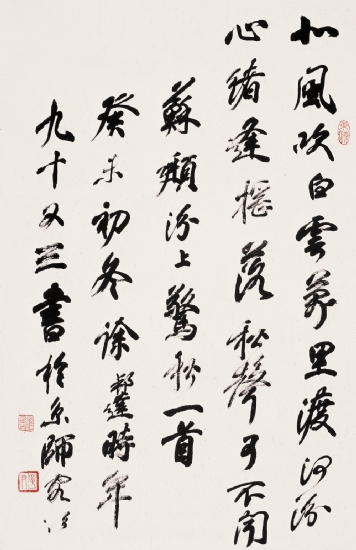 北風吹白雲萬里渡河汾
心緒逢搖落秋聲可不聞
蘇頲汾上驚秋一首
癸未初冬徐邦達時年
九十又三書於京師客次